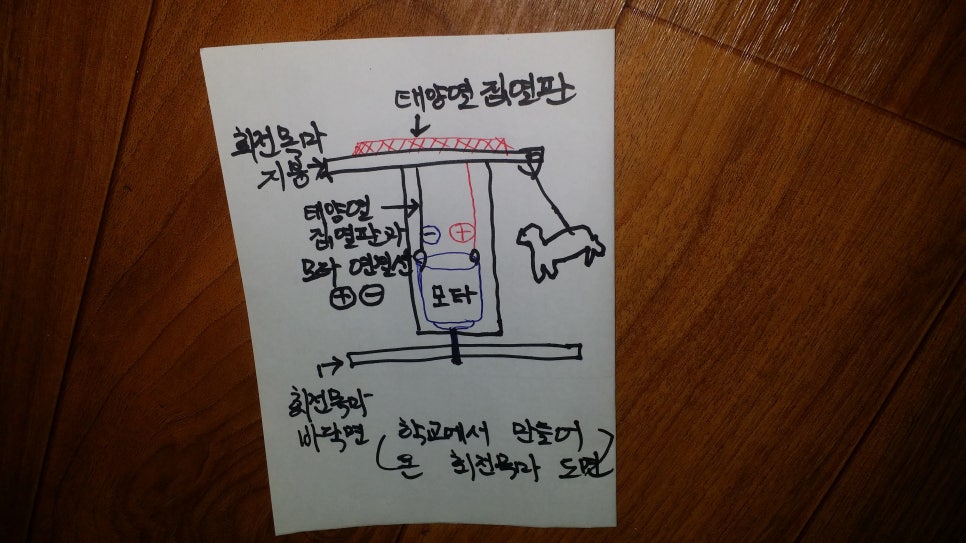 태양열 집열판
회전목마
지붕
태양열
집열판과
모타 연결선
⊕ ⊖
⊖ ⊕
모타
회전목마
바닥면
(학교에서 만들어
온 회전목마 도면)